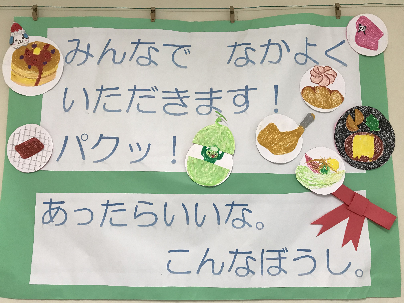 みんなで　なかよく
いただきます！
パクッ！
あったらいいな。
こんなぼうし。